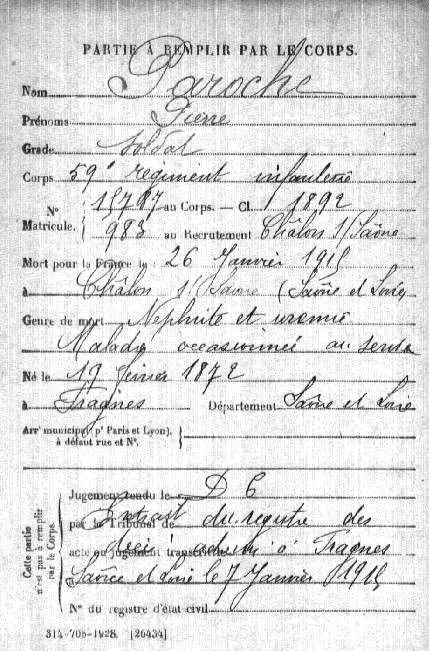 PARTIE À REMPLIR PAR LE CORPS.
Nom Paroche
Prénoms Pierre
Grade Soldat
Corps 59e régiment infanterie
N° Matricule. { 15787 au Corps. — Cl. 1892
983 au Recrutement Châlon s/Saône
Mort pour la France le 26 Janvier 1915
à Châlon s/Saône (Saône et Loire)
Genre de mort Néphrite et urémie
Maladie occasionnée au service
Né le 19 février 1872
à Fragnes Département Saône et Loire
Arrt municipal (pr Paris et Lyon), à défaut rue et N°.
Cette partie n'est pas à remplir par le Corps.
Jugement rendu le D C
par le Tribunal de Extrait du registre des
acte ou jugement transcrit le décès à Fragnes
Saône et Loire le 7 Janvier 1915
N° du registre d'état civil
314-708-1928. [26434]